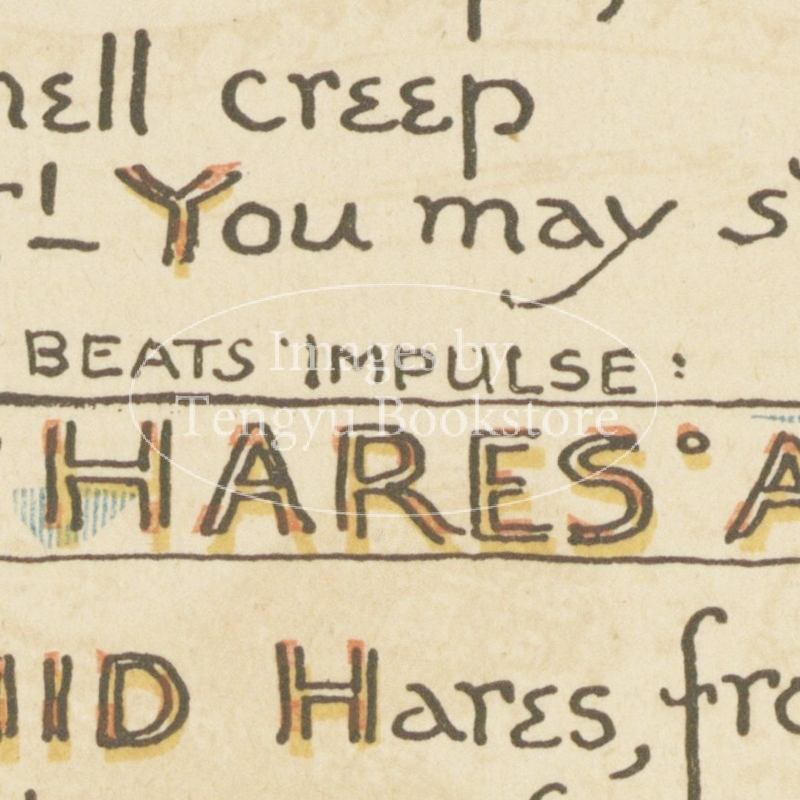 creep
You may
BEATS IMPULSE:
HARES
Hares,
Images by
Tengyu Bookstore